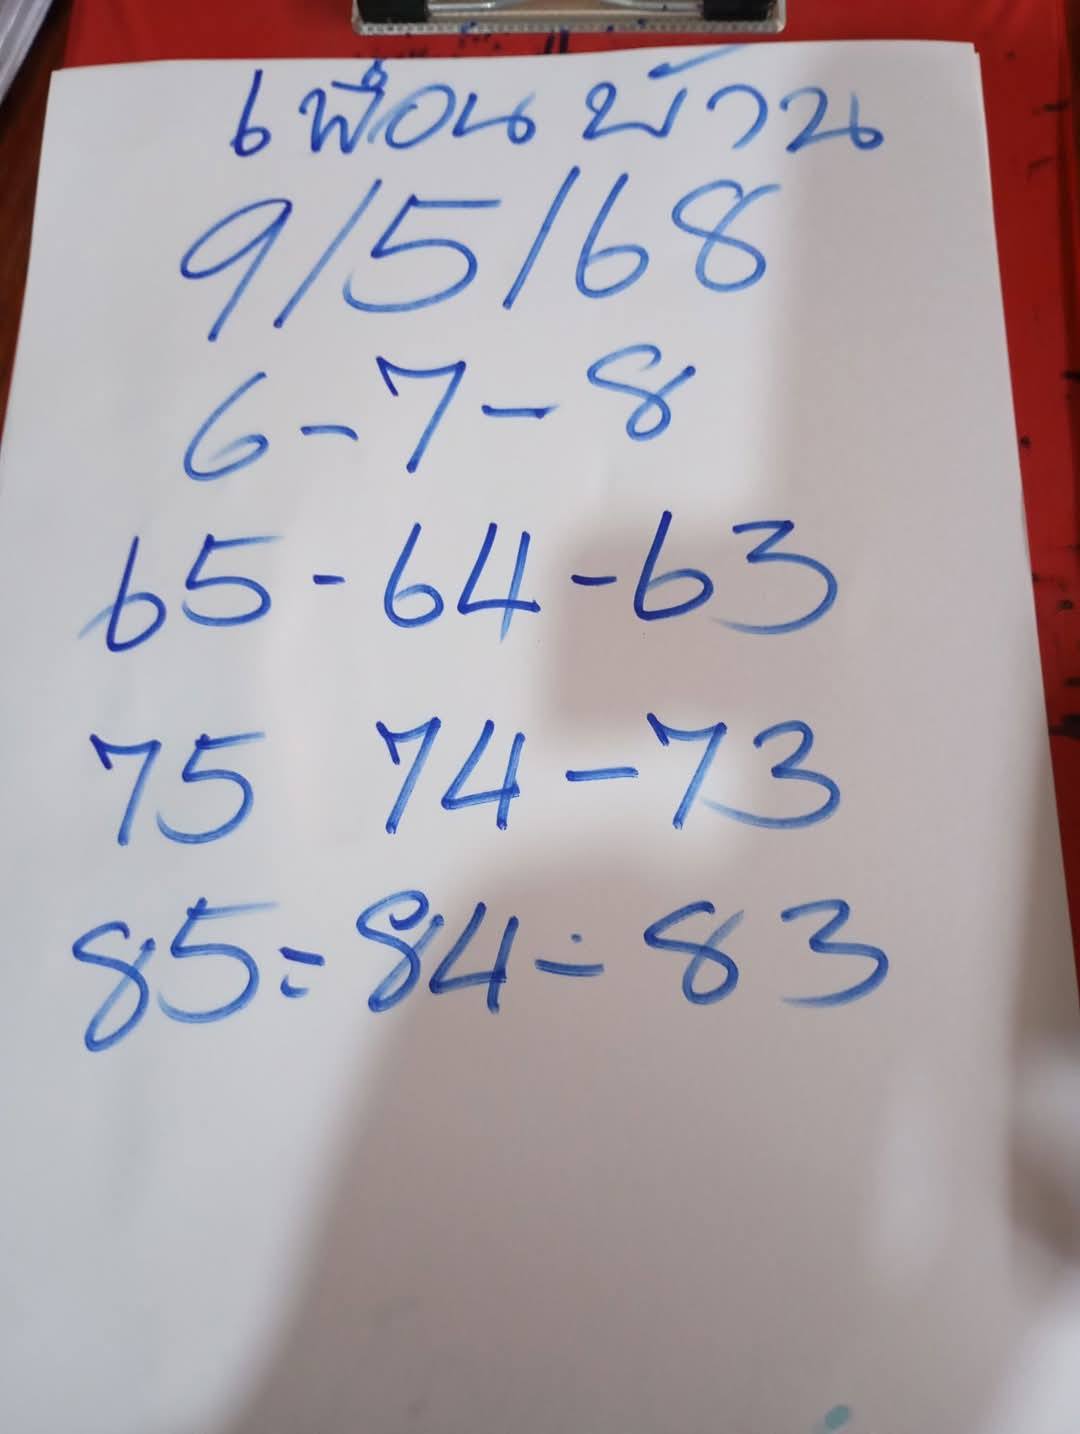 เพื่อนบ้าน
9/5/68
6-7-8
65-64-63
75 74-73
85=84÷83